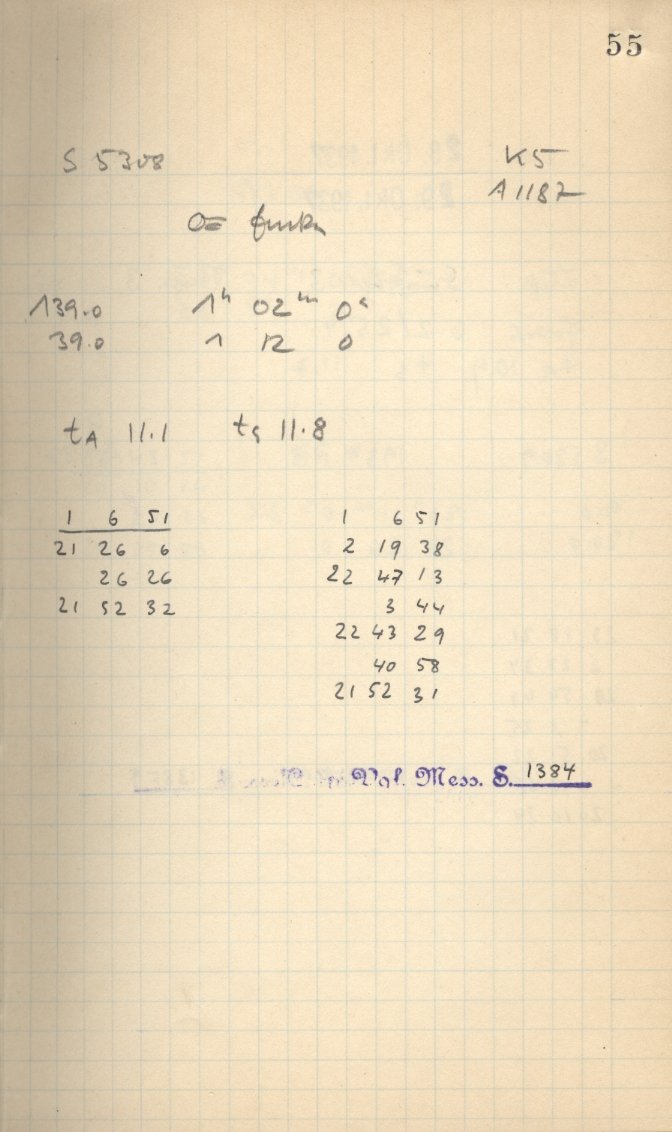 55
S 5308 K5
A 1187
139.0 1ʰ 02ᵐ 0ˢ
39.0 1 12 0
t_A 11.1 t_s 11.8
1 6 51
21 26 6
26 26
21 52 32
1 6 51
2 19 38
22 47 13
3 44
22 43 29
40 58
21 52 31
Mess. S. 1384